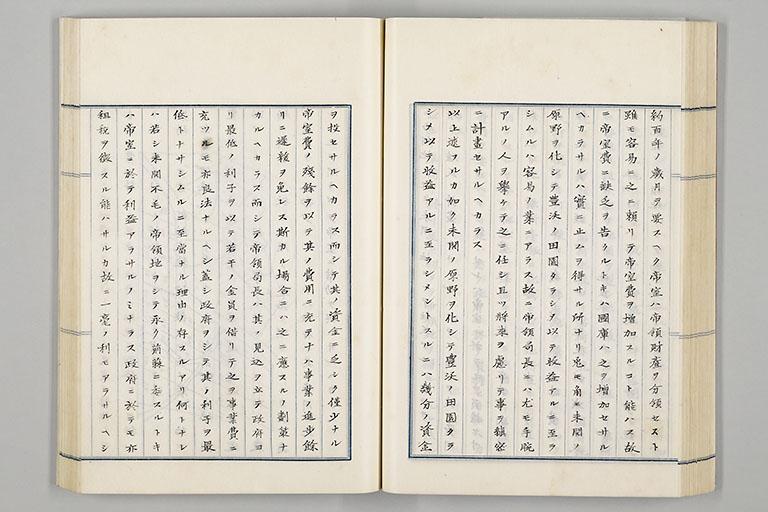 約百年ノ歳月ヲ要スヘク帝室ハ帝領財産ヲ分領セスト
雖モ容易ニ之ニ頼リテ帝室費ヲ増加スルコト能ハス故
ニ帝室費ニ缺乏ヲ告クルトキハ國庫ハ之ヲ増加セサル
ヘカラサルハ實ニ止ムヲ得サル所ナリ兎モ角モ未開ノ
原野ヲ化シテ豊沃ノ田園タラシメ以テ收益アルニ至ラ
シムルハ容易ノ業ニアラス故ニ帝領局長ニハ尤モ手腕
アルノ人ヲ擧ケテ之ニ任シ且ツ將来ヲ慮リテ事ヲ鎮密
ニ計畫セサルヘカラス
以上述フルカ如ク未開ノ原野ヲ化シテ豊沃ノ田園タラ
シメ以テ收益アルニ至ラシメントスルニハ幾分ノ資金
ヲ投セサルヘカラス而シテ其ノ資金ニ乏シク僅少ナル
帝室費ノ殘餘ヲ以テ其ノ費用ニ充テナハ事業ノ進歩餘
リニ遅緩ヲ免レス斯カル場合ニハ之ニ應スルノ劃策ナ
カルヘカラス而シテ帝領局長ハ其ノ見込ヲ立テ政府ヨ
リ最低ノ利子ヲ以テ若干ノ金員ヲ借リテ之ヲ事業費ニ
充ツルモ亦良法ナルヘシ蓋シ政府ヲシテ其ノ利子ヲ最
低トナサシムルニ至當ナル理由ノ存スルアリ何トナレ
ハ若シ未開不毛ノ帝領地ヲシテ永ク荊蘇ニ委スルトキ
ハ帝室ニ於テ利益アラサルノミナラス政府ニ於テモ亦
租税ヲ徴スル能ハサルカ故ニ一毫ノ利モアラサルヘシ